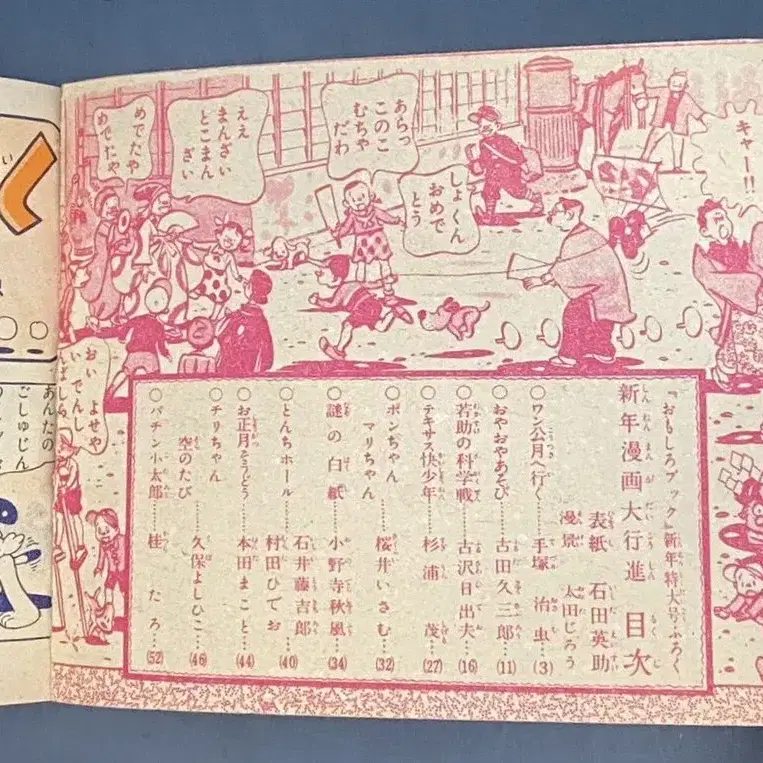 キャー!!
あらっ
このこ
むちゃ
だわ
しょくん
おめで
とう
ええ
まんざい
どこまん
ざい
めでたや
めでたや
おい よせや
い でんし
んばしら
『おもしろブック』新年特大号ふろく
新年漫画大行進 目次
しんねんまんがだいこうしん もくじ
表紙 石田英助
漫景 太田じろう
○ワン公月へ行く……手塚 治虫…(3)
○おやおやあそび……古田久三郎…(11)
○若助の科学戦……古沢日出夫…(16)
○テキサス快少年……杉浦 茂…(27)
○ポンちゃん
マリちゃん……桜井いさむ…(32)
○謎の白紙……小野寺秋風…(34)
○とんちホール……石井藤吉郎
村田ひでお (40)
○お正月そうどう……本田まこと…(44)
○チリちゃん
空のたび……久保よしひこ…(46)
○パチン小太郎……桂 たろ…(52)
あんたの
ごしゅじん